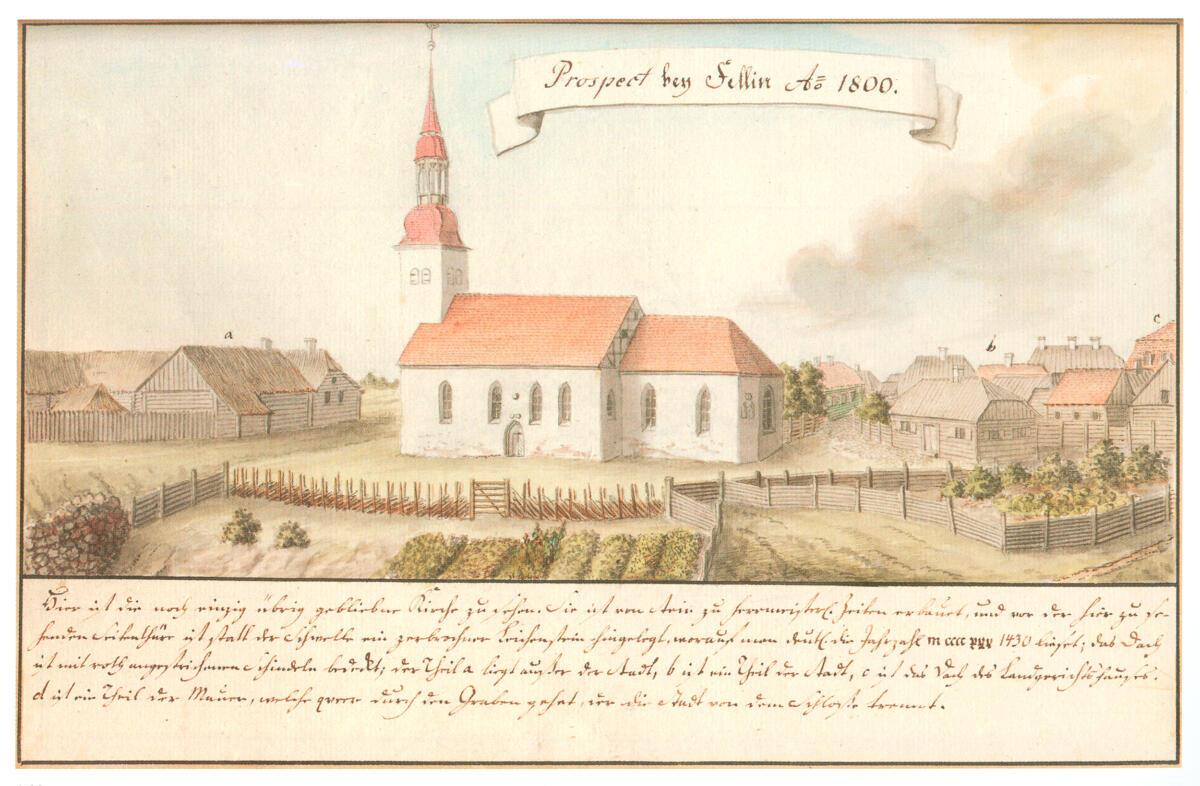 Prospect bey Fellin Ao 1800.
a
b
c
Hier ist die noch einzig übrig gebliebne Kirche zu sehen. Sie ist von Stein zu herrmeisterl. Zeiten erbauet, und vor der hier zu se-
henden Seitenthüre ist statt der Schwelle ein zerbrochner Leichenstein hingelegt, worauf man deutl. die Jahrzahl m cccc xxx 1430 lieset; das Dach
ist mit roth angestrichenen Schindeln bedeckt; der Theil a liegt außer der Stadt, b ist ein Theil der Stadt, c ist das Dach des Landgerichtshauses.
d ist ein Theil der Mauer, welche queer durch den Graben gehet, der die Stadt von dem Schlosse trennt.